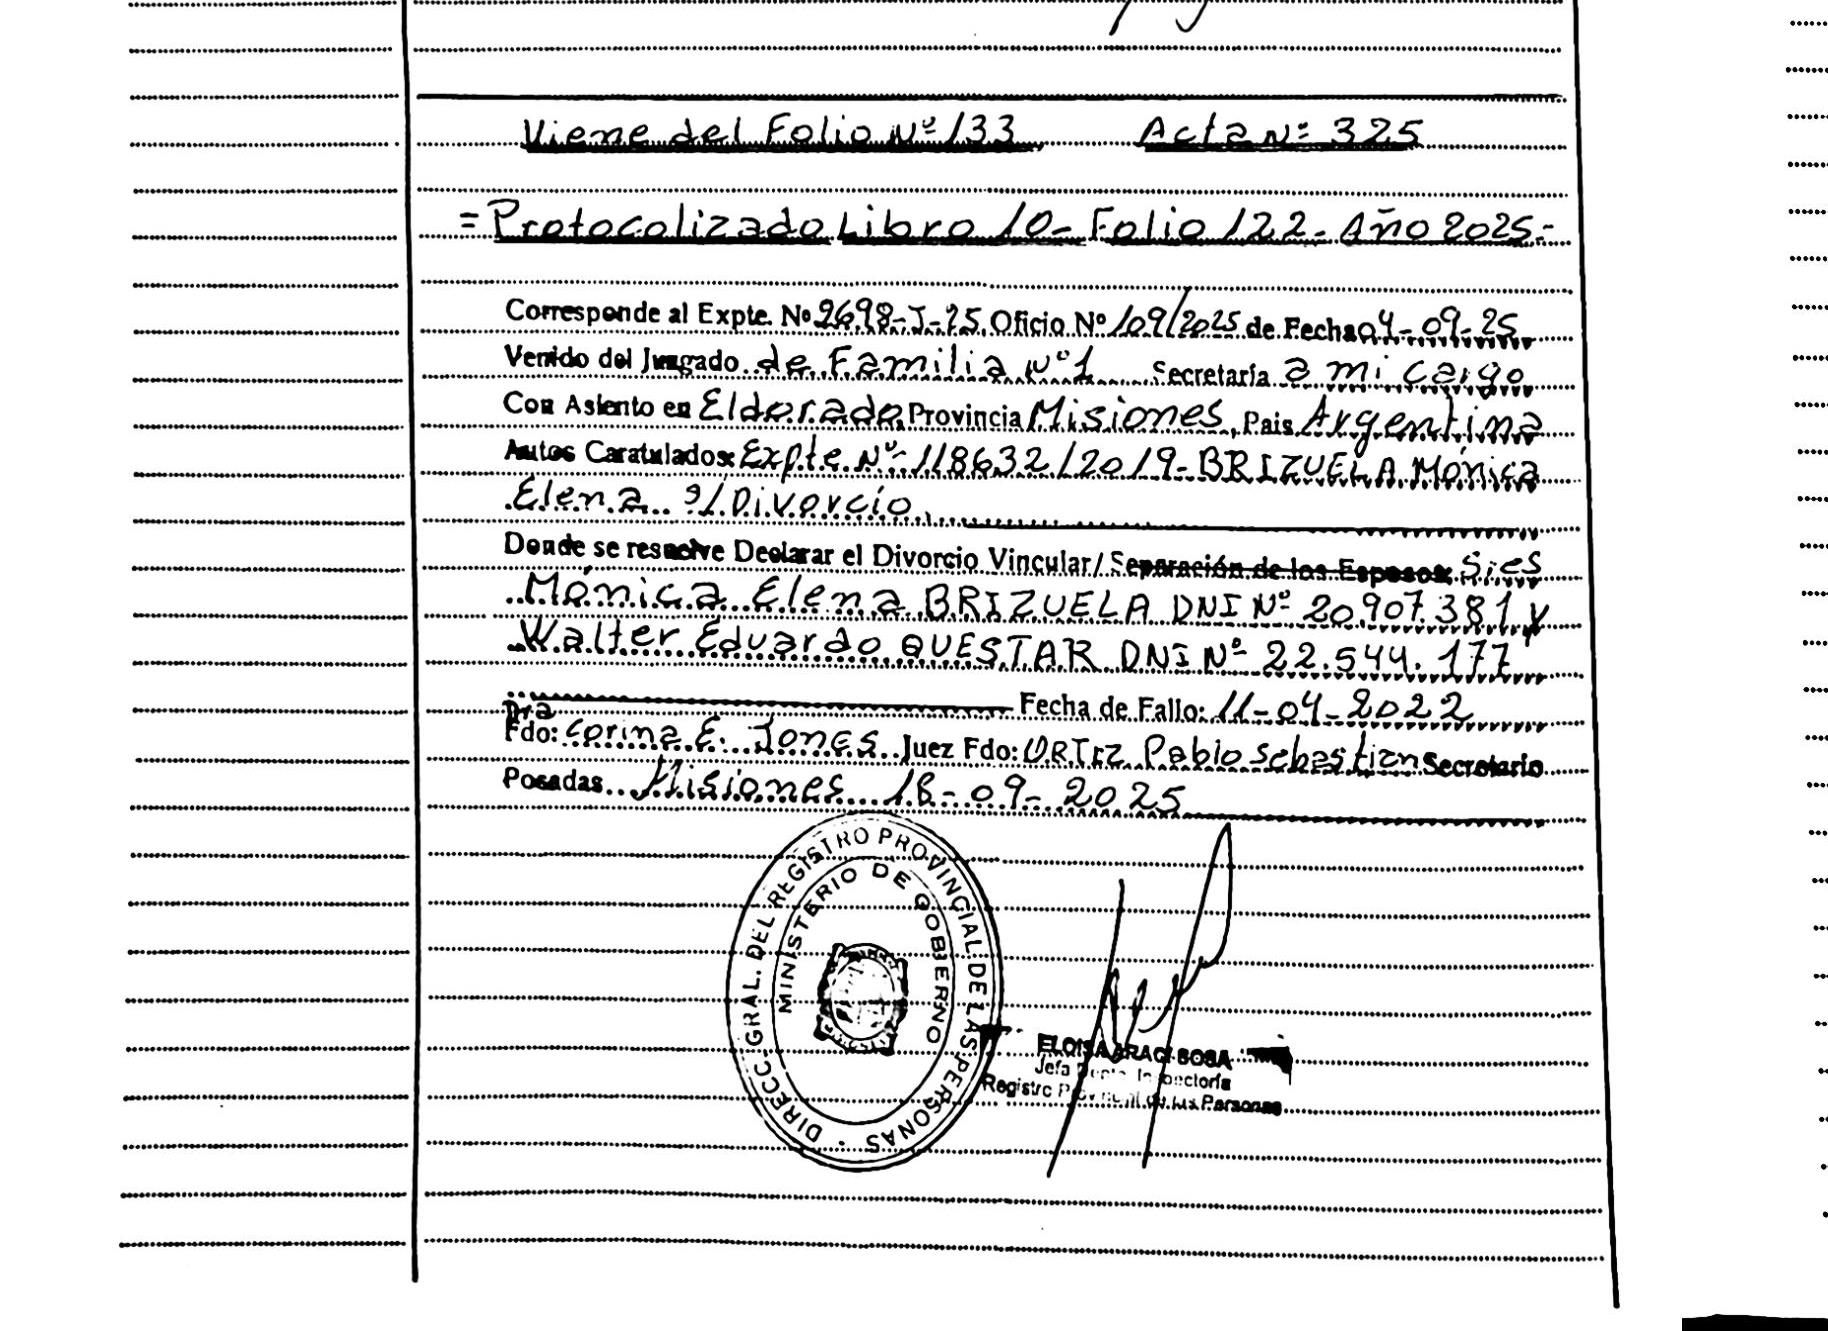 Viene del Folio Nº 133 Acta Nº 325
= Protocolizado Libro 10 - Folio 122 - Año 2025.-
Corresponde al Expte. Nº 2698-J-25 Oficio Nº 109/2025 de Fecha 04-09-25
Venido del Juzgado de Familia Nº 1 Secretaría a mi cargo
Con Asiento en Eldorado, Provincia Misiones, Pais Argentina
Autos Caratulados: Expte Nº 118632/2019 - BRIZUELA Mónica
Elena s/Divorcio
Donde se resuelve Declarar el Divorcio Vincular/ Separación de los Esposos:
Mónica Elena BRIZUELA DNI Nº 20.907.381 y
Walter Eduardo QUESTAR DNI Nº 22.544.177
Fecha de Fallo: 11-04-2022
Dra
Fdo: Corina E. Jones Juez Fdo: ORTIZ Pablo Sebastian Secretario
Posadas Misiones 18-09-2025
DIRECC. GRAL. DEL REGISTRO PROVINCIAL DE LAS PERSONAS
MINISTERIO DE GOBIERNO
ELOISA ARACI SOSA
Jefa Dpto. Inspectoría
Registro Provincial de las Personas